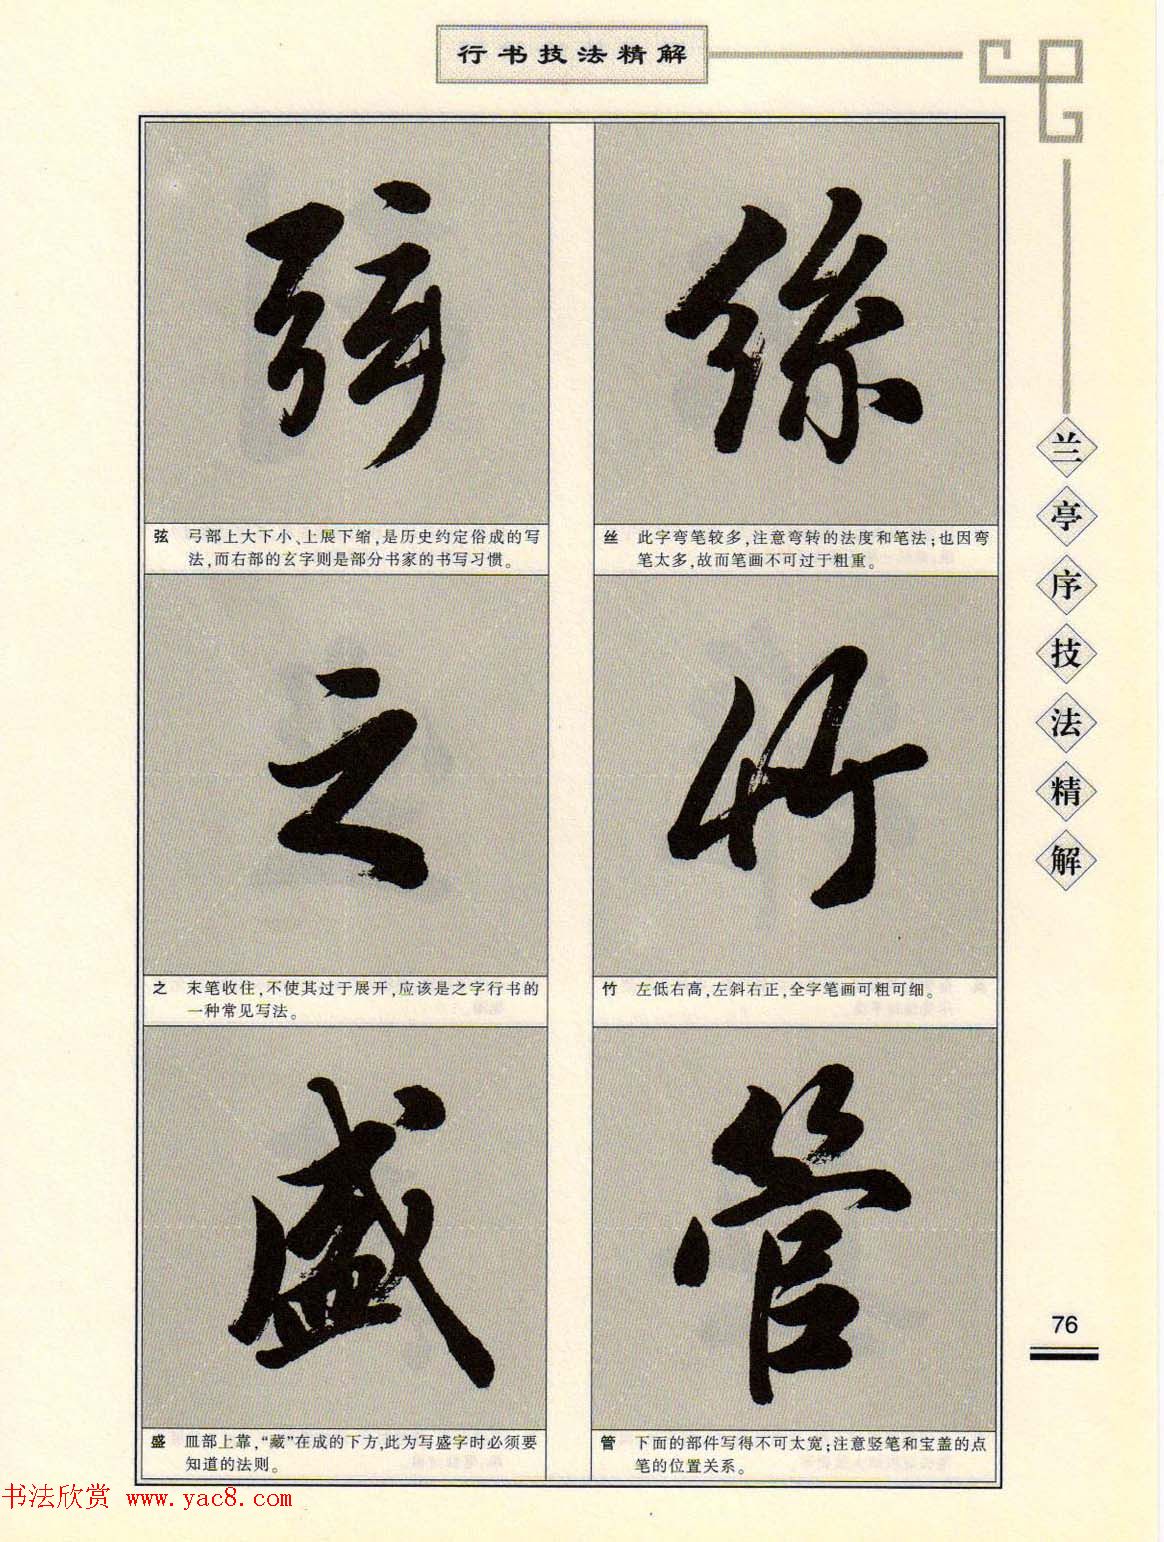 行书技法精解
絲
丝 此字弯笔较多,注意弯转的法度和笔法;也因弯
笔太多,故而笔画不可过于粗重。
竹
竹 左低右高,左斜右正,全字笔画可粗可细。
管
管 下面的部件写得不可太宽;注意竖笔和宝盖的点
笔的位置关系。
弦
弦 弓部上大下小、上展下缩,是历史约定俗成的写
法,而右部的玄字则是部分书家的书写习惯。
之
之 末笔收住,不使其过于展开,应该是之字行书的
一种常见写法。
盛
盛 皿部上靠,“藏”在成的下方,此为写盛字时必须要
知道的法则。
兰亭序技法精解
76
书法欣赏 www.yac8.com